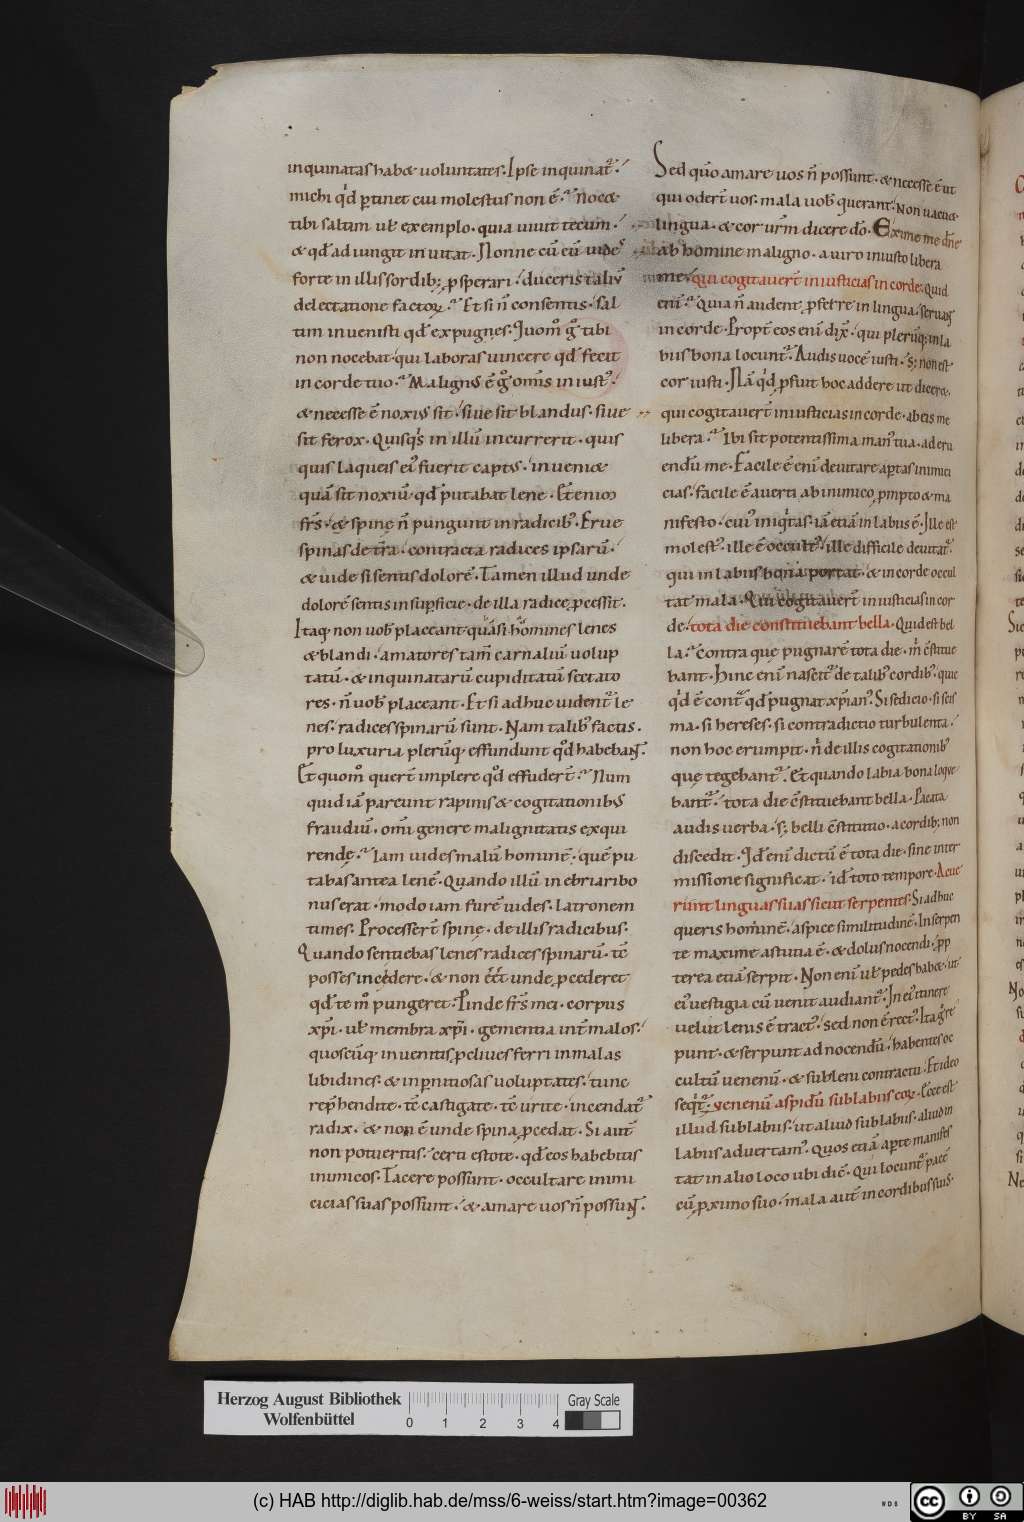 inquinatas habet uoluntates. Ipse inquinat᷑.
michi qd́ ptinet cui molestus non ē.᷑ nocet
tibi saltim uł exemplo. quia uiuit tecum.
& qđ adiungit inuitat. Nonne cū eū uides
forte in illis sordib; p̱sperari. duceris taliū
delectatione factoꝝ.᷑ Et si n̄ consentis. sal
tim inuenisti qđ expugnes. Quom̊ g̊ tibi
non nocebat. qui laboras uincere qđ fecit
in corde tuo.᷑ Malignꝰ ē g̊ om̄s iniust᾿.
& necesse ē noxiꝰ sit. siue sit blandus. siue
sit ferox. Quisq́s in illū incurrerit. quis
quis laqueis ei᾿ fuerit captꝰ. inueniet
quā sit noxiū. qđ putabat lene. Etenim
frs̄. & spinę n̄ pungunt in radicib᾿. Erue
spinas de tr̄a. contracta radices ipsarū.
& uide si sentis dolorē. Tamen illud unde
dolorē sentis in supficie. de illa radice p̱cessit.
Itaq; non uob̄ placeant quasi homines lenes
& blandi. amatores tam̄ carnaliū uolup
tatū. & inquinatarū cupiditatū sectato
res. n̄ uob̄ placeant. Et si adhuc uident᷑ le
nes. radices spinarū sunt. Nam talib᾿ factus.
pro luxuria plerūq; effundunt qđ habebant.
Et quom̊ quert̄ implere qđ effudert̄.᷑ Num
quid iā pareunt rapinis & cogitationibꝰ
fraudiū. om̄i genere malignitatis exqui
rendę.᷑ Iam uides malū hominē. quē pu
tabas antea lenē. Quando illū inebriari bo
nus erat. modo iam furē uides. latronem
times. Processert̄ spinę. de illis radicibus.
Quando sentiebas lenes radices spinarū. tc̄
posses incedere. & non eēt unde p̱cederet
qđ te m̊ pungeret. Pinde frs̄ mei. corpus
xp̄i. uł membra xp̄i. gementia int̄ malos.
quoscūq; inuentis p̱cliues ferri in malas
libidines. & in pnitiosas uoluptates. tunc
rep̄hendite. tc̄ castigate. tc̄ urite. incendat᷑
radix. & non ē unde spina p̱cedat. Si aut̄
non potueritis. certi estote. qđ eos habebitis
inimicos. Tacere possunt. occultare inimi
cicias suas possunt. & amare uos n̄ possunt.
Sed qūo amare uos n̄ possunt. & necesse ē ut
qui odert̄ uos. mala uob̄ querant. Non uacuet
lingua. & cor ur̄m dicere dō. Exime me dn̄e
ab homine maligno. a uiro iniusto libera
me. qui cogitauert̄ iniusticias in corde. Quid
eni.᷑ Quia n̄ audent p̱ferre in lingua. seruant
in corde. Propt̄ eos eni dix̄. qui plerūq; in la
biis bona locunt᷑. Audis uocē iusti. s; non est
cor iusti. Nā qd́ p̱fuit hoc addere ut diceret.
qui cogitauert̄ iniusticias in corde. ab eis me
libera.᷑ Ibi sit potentissima man᾿ tua. ad eru
endū me. Facile ē eni deuitare aptas inimici
cias. facile ē auerti ab inimico p̱mpto & ma
nifesto. cui᾿ iniq́tas. iā etiā in labiis ē. Ille est
molest᾿. ille ē occult᾿. ille difficile deuitat᷑.
qui in labiis bona portat. & in corde occul
tat mala. Qui cogitauert̄ iniusticias in cor
de. tota die constituebant bella. Quid est bel
la.᷑ Contra que pugnarē tota die. m̄ c̄stitue
bant. Hinc eni nascit᷑ de talib᾿ cordib᾿. quic
qd́ ē cont̄ qđ pugnat xp̄ian᾿. Si sedicio. si scis
ma. si hereses. si contradictio turbulenta.
non hoc erumpit. n̄ de illis cogitationib᾿
quę tegebant᷑. Et quando labia bona loque
bant᷑. tota die c̄stituebant bella. Pacata
audis uerba. s; belli c̄stitutio. a cordib; non
discedit. Qđ eni dictū ē tota die. sine inter
missione significat. id̄ toto tempore. Acue
runt linguas suas sicut serpentes. Si adhuc
queris hominē. aspice similitudinē. In serpen
te maxime astutia ē. & dolus nocendi. p̱p
terea etiā serpit. Non eni uł pedes habet. ut
ei᾿ uestigia cū uenit audiant᷑. In ei᾿ itinere
uelut lenis ē tract᾿. sed non ē rect᾿. Ita g̊ re
punt. & serpunt ad nocendū. habentes oc
cultū uenenū. & sub leni contractu. Et ideo
seqt̄᷑. uenenū aspidū sub labiis eoꝝ. Ecce est
illud sub labiis. ut aliud sub labiis. aliud in
labiis aduertam᾿. Quos etiā apte manifes
tat in alio loco ubi dic̄. Qui locunt᷑ pacē
cū p̱ximo suo. mala aut̄ in cordibus suis.
Herzog August Bibliothek
Wolfenbüttel
0 1 2 3 4
Gray Scale
(c) HAB http://diglib.hab.de/mss/6-weiss/start.htm?image=00362
cc BY SA